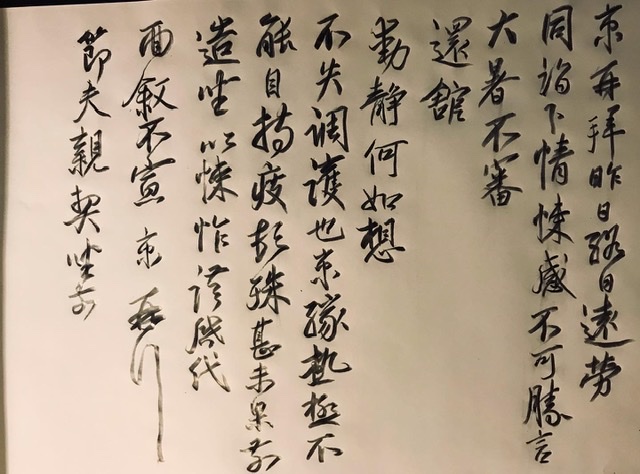 京再拜昨日終日遠勞
同詣下情悚感不可勝言
大暑不審
還舘
動静何如想
不失调護也京缘熱極不
能自持疲彭殊甚未果前
造坐以悚怍謹啟代
面敘不宣京再拜
節夫親契坐前